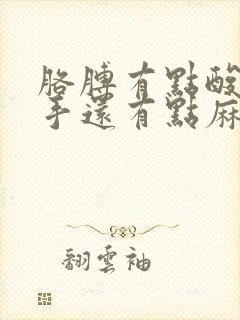 胳膊有點酸
手還有點麻
翻雲袖